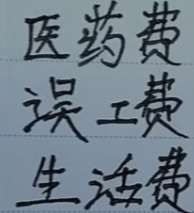 医药费
误工费
生活费